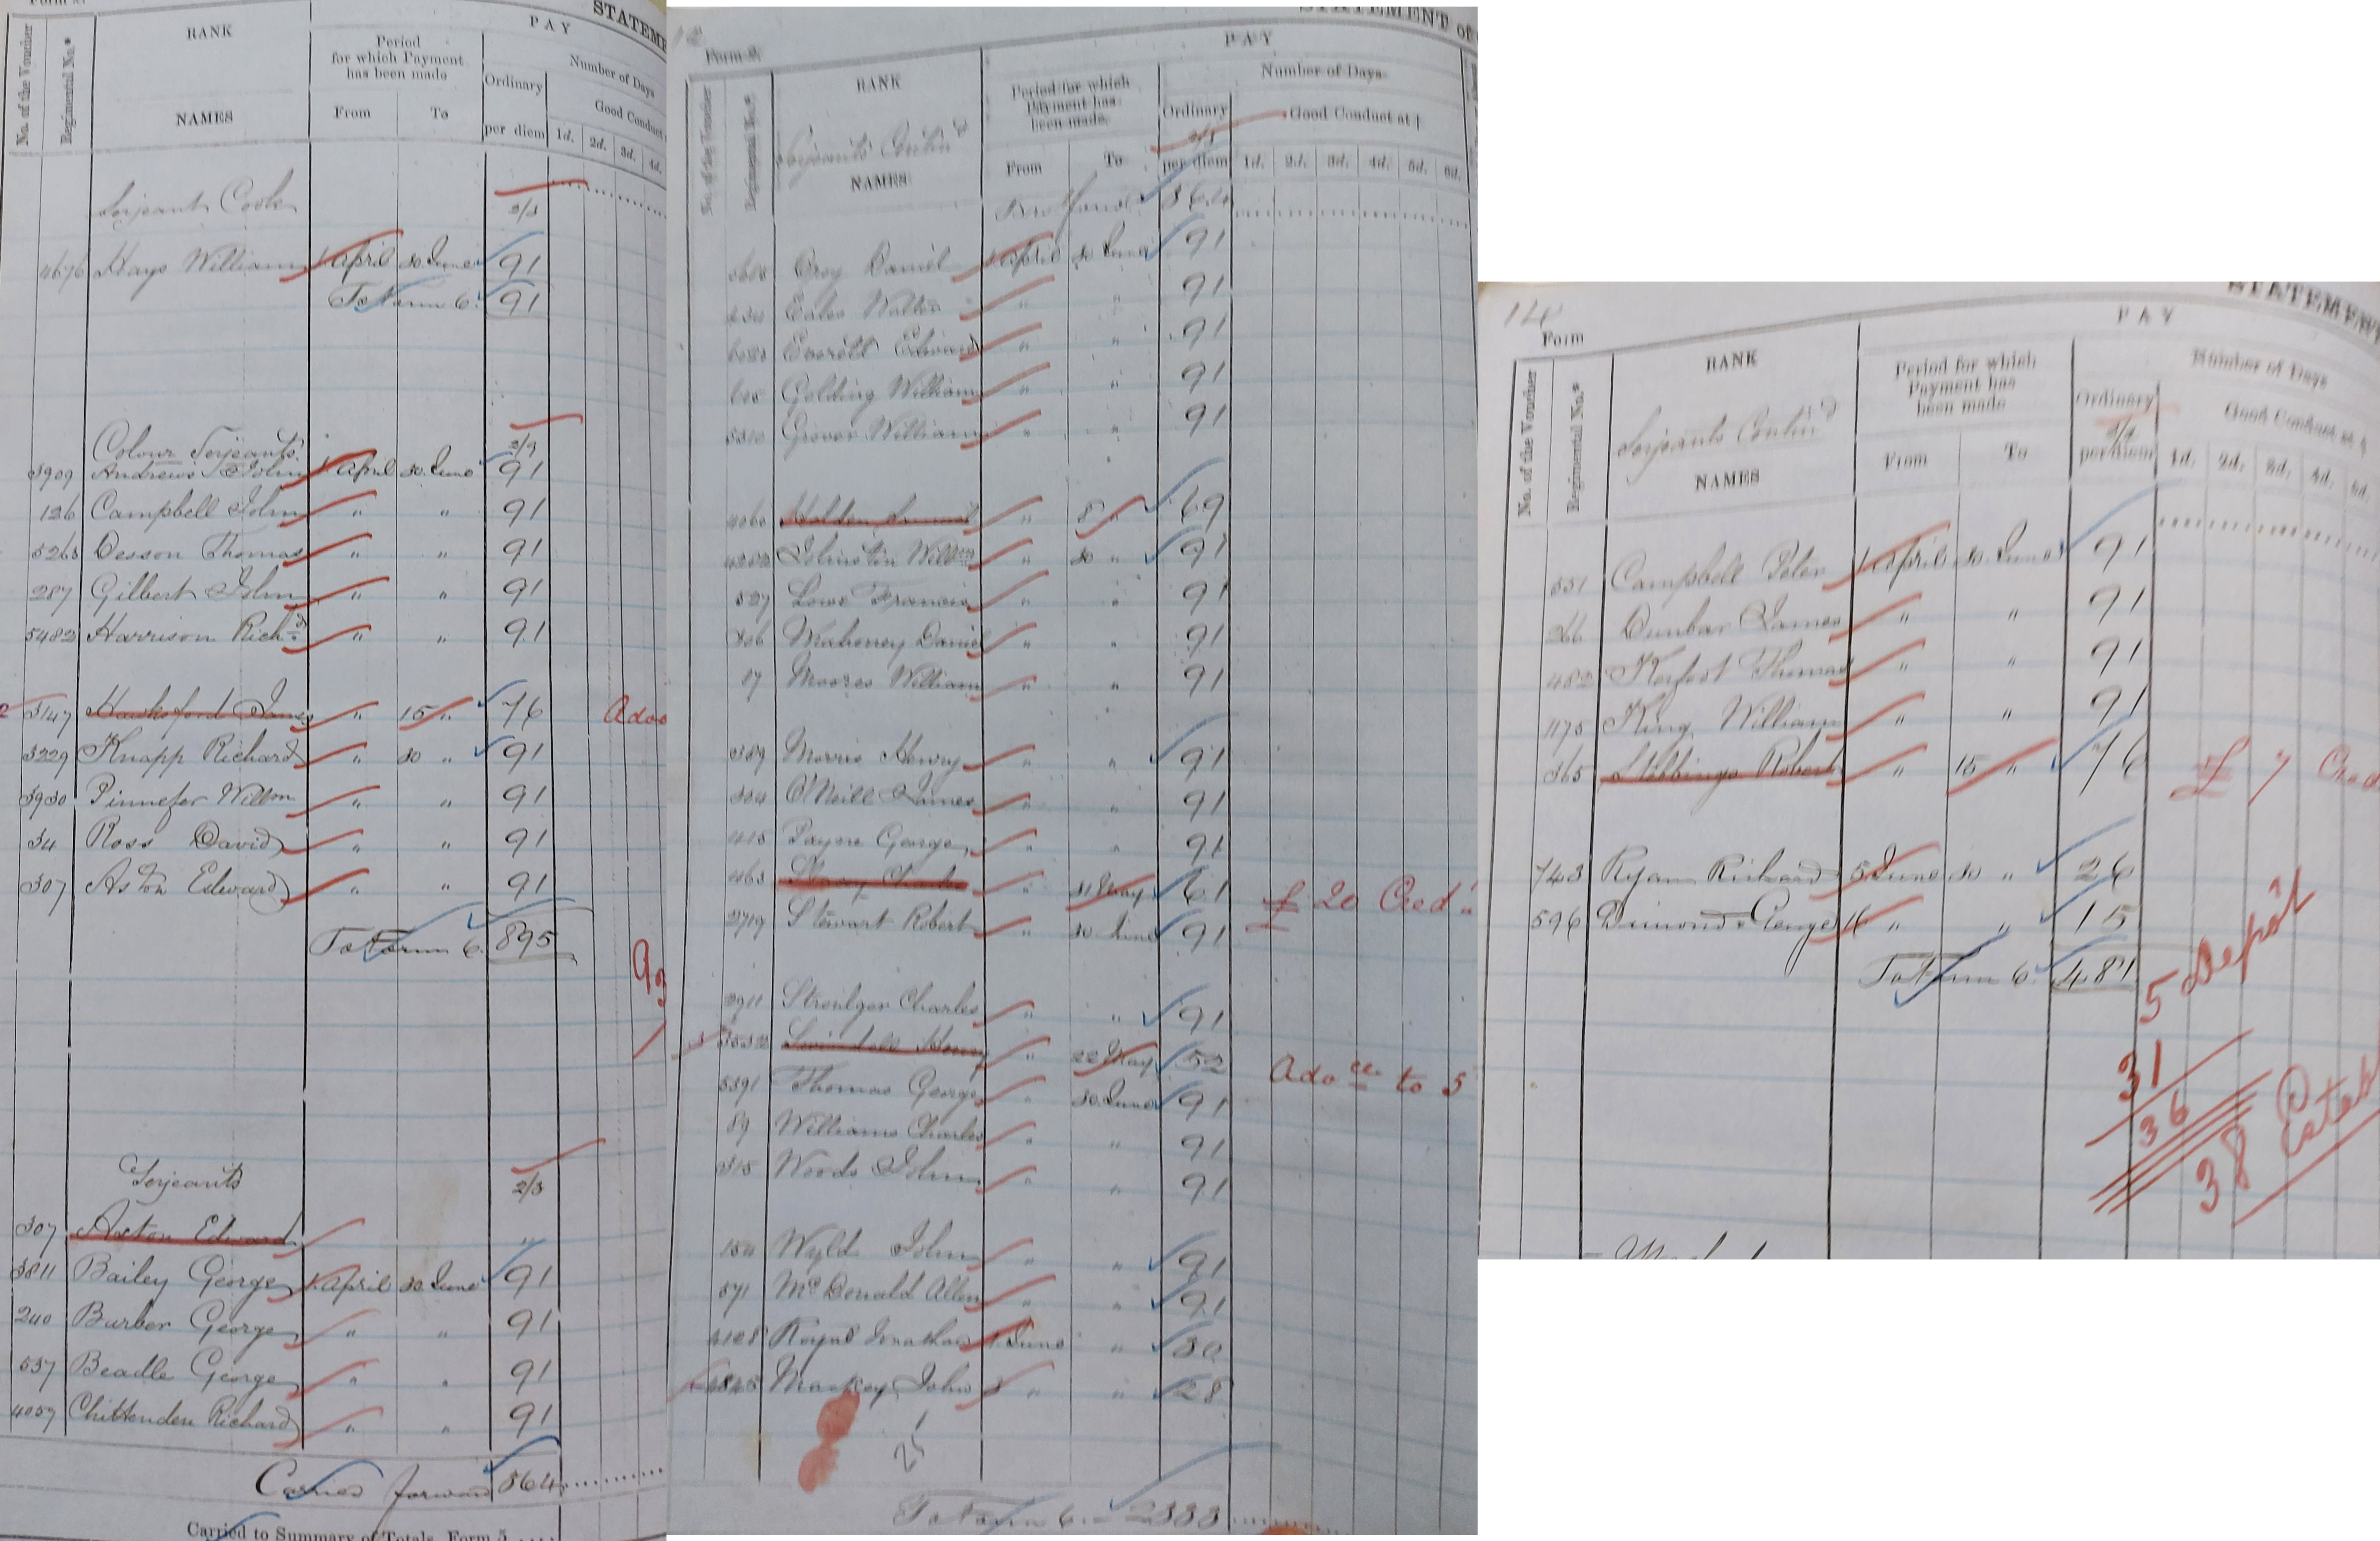 STATEME
RANK
PAY
No. of the Voucher
Regimental No.*
Period
for which Payment
has been made
Number of Days
Ordinary
Good Conduct
NAMES
From To
per diem 1d. 2d. 3d. 4d.
Serjeant Cook
2/3
4676 Hays William 1 April 30 June 91
To Form 6. 91
Colour Serjeants
3909 Andrews John 1 April 30 June 91
126 Campbell John " " 91
5263 Desson Thomas " " 91
287 Gilbert John " " 91
5482 Harrison Richd " " 91
3147 Hawksford James " 15 " 76
3229 Knapp Richard " 30 " 91
3930 Pinnefer Willm " " 91
34 Ross David " " 91
307 Aston Edward " " 91
To Form 6. 895
Serjeants
2/3
307 Axton Edward "
3811 Bailey George 1 April 30 June 91
240 Burber George " " 91
537 Beadle George " " 91
4057 Chittenden Richard " " 91
Carried forward 564
Carried to Summary of Totals, Form 5
12
STATEMENT of
Form 2.
PAY
No. of the Voucher
Regimental No.*
RANK
Period for which
Payment has
been made.
Number of Days
Ordinary
Good Conduct at †
Serjeants Contind
NAMES
From To
per diem 1d. 2d. 3d. 4d. 5d. 6d.
Brot forwd 564
Croy Daniel 1 April 30 June 91
Eales Walter " " 91
Everett Edward " " 91
Golding William " " 91
5310 Grover William " " 91
4060 Holden " 8 " 69
4282 Johnston Willm " 30 " 91
527 Lowe Francis " " 91
306 Mahoney Daniel " " 91
17 Moores William " " 91
389 Morris Henry " " 91
304 O'Neill James " " 91
415 Payne George " " 91
463 " 31 May 61 £ 20 Cred
2719 Stewart Robert " 30 June 91
2911 Stroulger Charles " " 91
3532 Swindell Henry " 22 May 52 Adoce to 5
5391 Thomas George " 30 June 91
89 Williams Charles " " 91
315 Woods John " " 91
154 Wyld John " " 91
571 McDonald Allen " " 91
4128 Royal Jonathan 1 June " 30
4845 Mackey John 3 " " 28
1
25
To Form 6. 2333
14
STATEMENT
Form
PAY
No. of the Voucher
Regimental No.*
RANK
Period for which
Payment has
been made
Number of Days
Ordinary
Good Conduct at †
Serjeants Contind
NAMES
From To
per diem 1d. 2d. 3d. 4d. 5d.
551 Campbell Peter 1 April 30 June 91
266 Dunbar James " " 91
482 Kerfoot Thomas " " 91
1175 King William " " 91
365 Stebbings Robert " 15 " 76 £ 7 Cred
743 Ryan Richard 5 June 30 " 26
596 Dimond George 16 " " 15
To Form 6. 481
5 Depôt
31
36
38 Estab